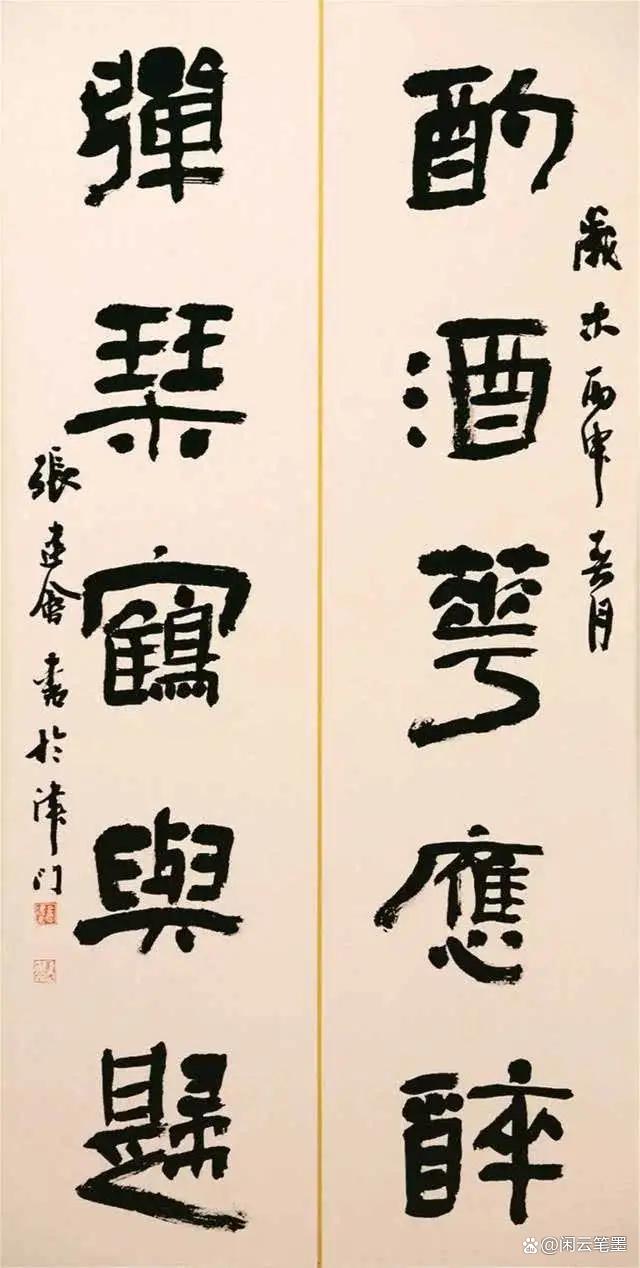 酌酒華應醉
歲末丙申春月
彈琴鶴與歸
張建會書於津門
@闲云笔墨